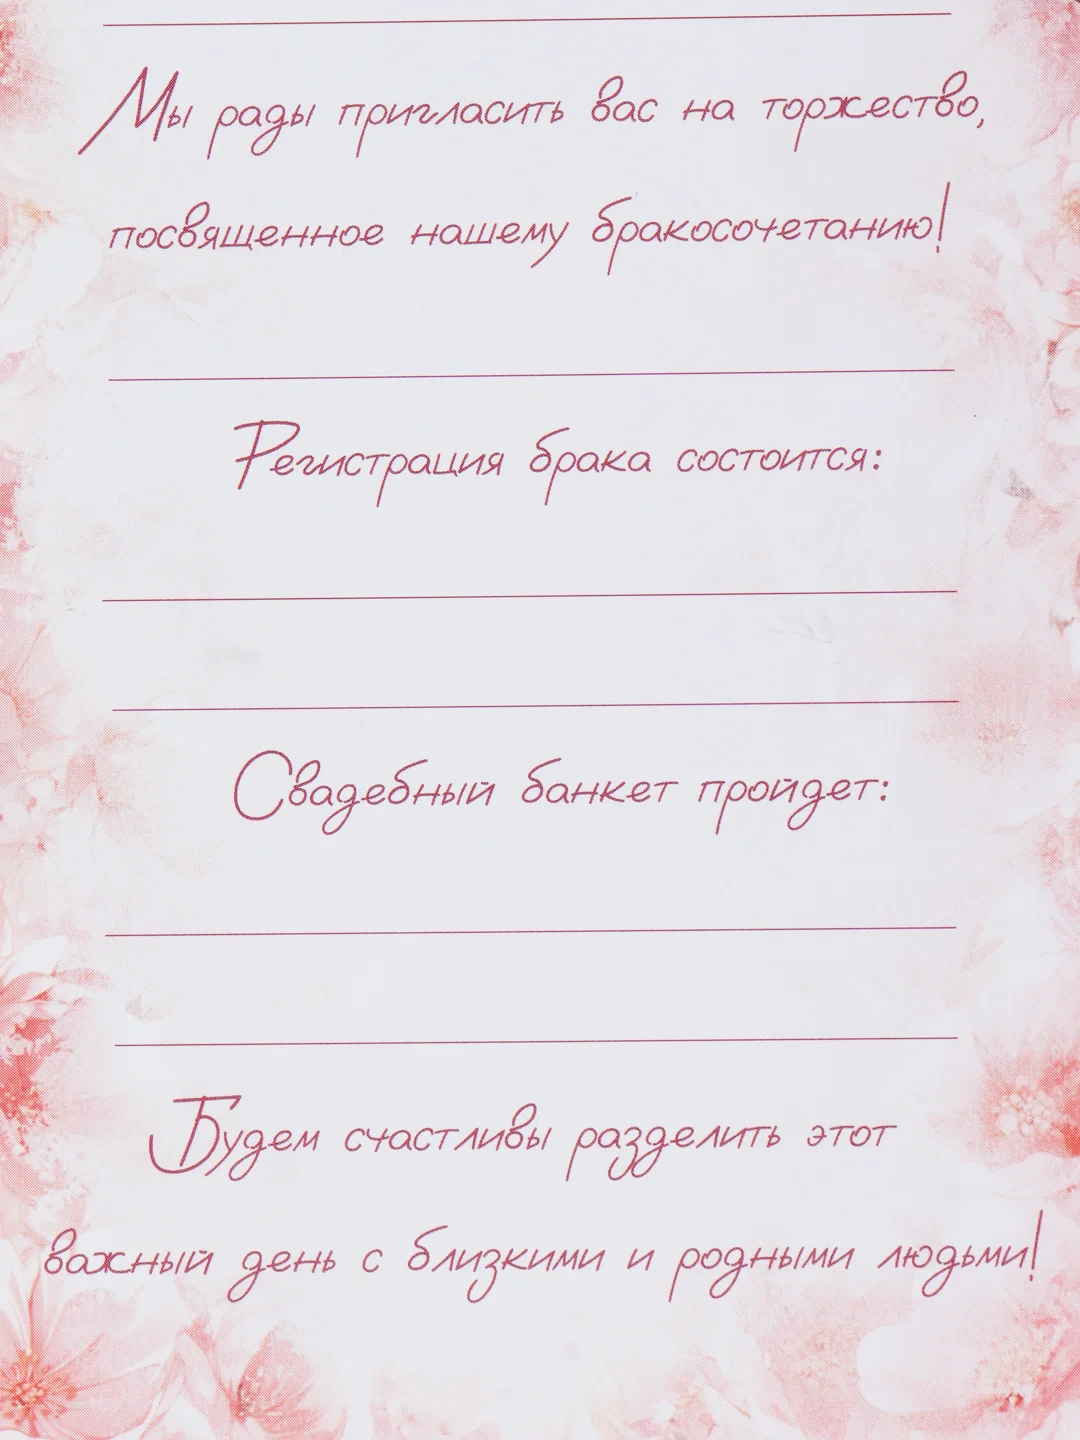 Мы рады пригласить вас на торжество,
посвященное нашему бракосочетанию!
Регистрация брака состоится:
Свадебный банкет пройдет:
Будем счастливы разделить этот
важный день с близкими и родными людьми!